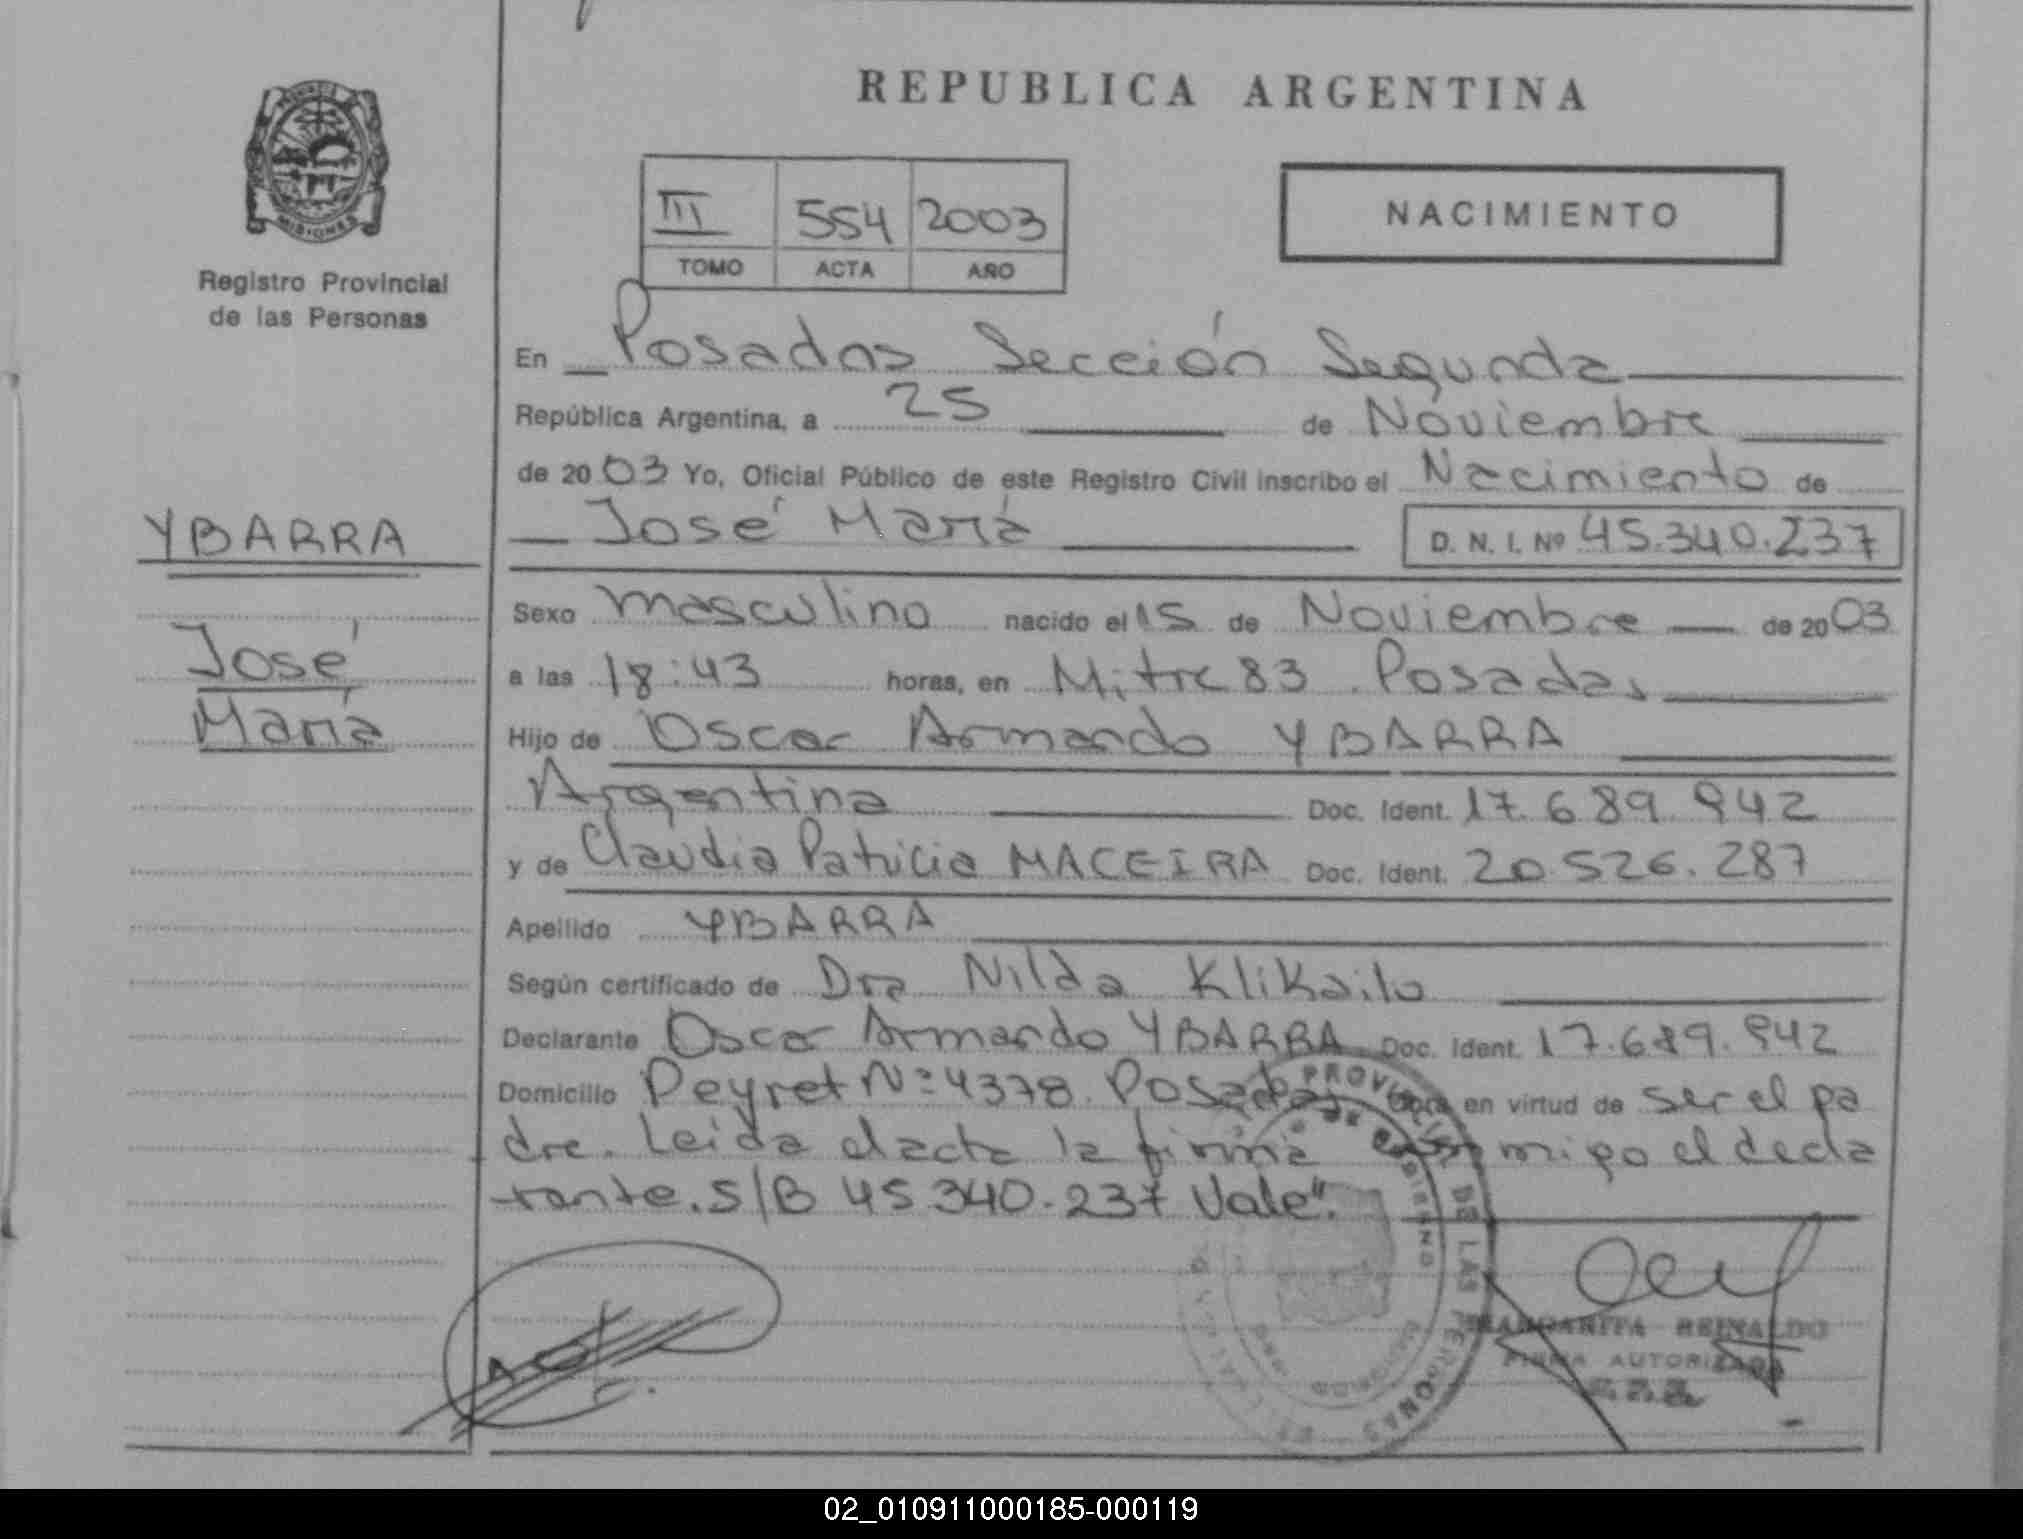 REPUBLICA ARGENTINA
PROVINCIA DE
MISIONES
Registro Provincial
de las Personas
III 554 2003
TOMO ACTA AÑO
NACIMIENTO
En Posadas Sección Segunda
República Argentina, a 25 de Noviembre
de 2003 Yo, Oficial Público de este Registro Civil inscribo el Nacimiento de
José María D. N. I. Nº 45.340.237
YBARRA
José
María
Sexo masculino nacido el 15 de Noviembre de 2003
a las 18:43 horas, en Mitre 83 Posadas
Hijo de Oscar Armando YBARRA
Argentina Doc. Ident. 17.689.942
y de Claudia Patricia MACEIRA Doc. Ident. 20.526.287
Apellido YBARRA
Según certificado de Dra Nilda Klikailo
Declarante Oscar Armando YBARRA Doc. Ident. 17.689.942
Domicilio Peyret Nº 4378 Posadas Obra en virtud de ser el pa
dre. Leida el acta la firma con migo el decla
rante. S/B 45.340.237 Vale".
PROVINCIAL DE LAS PERSONAS
MARGARITA REINALDO
FIRMA AUTORIZADA
02_010911000185-000119